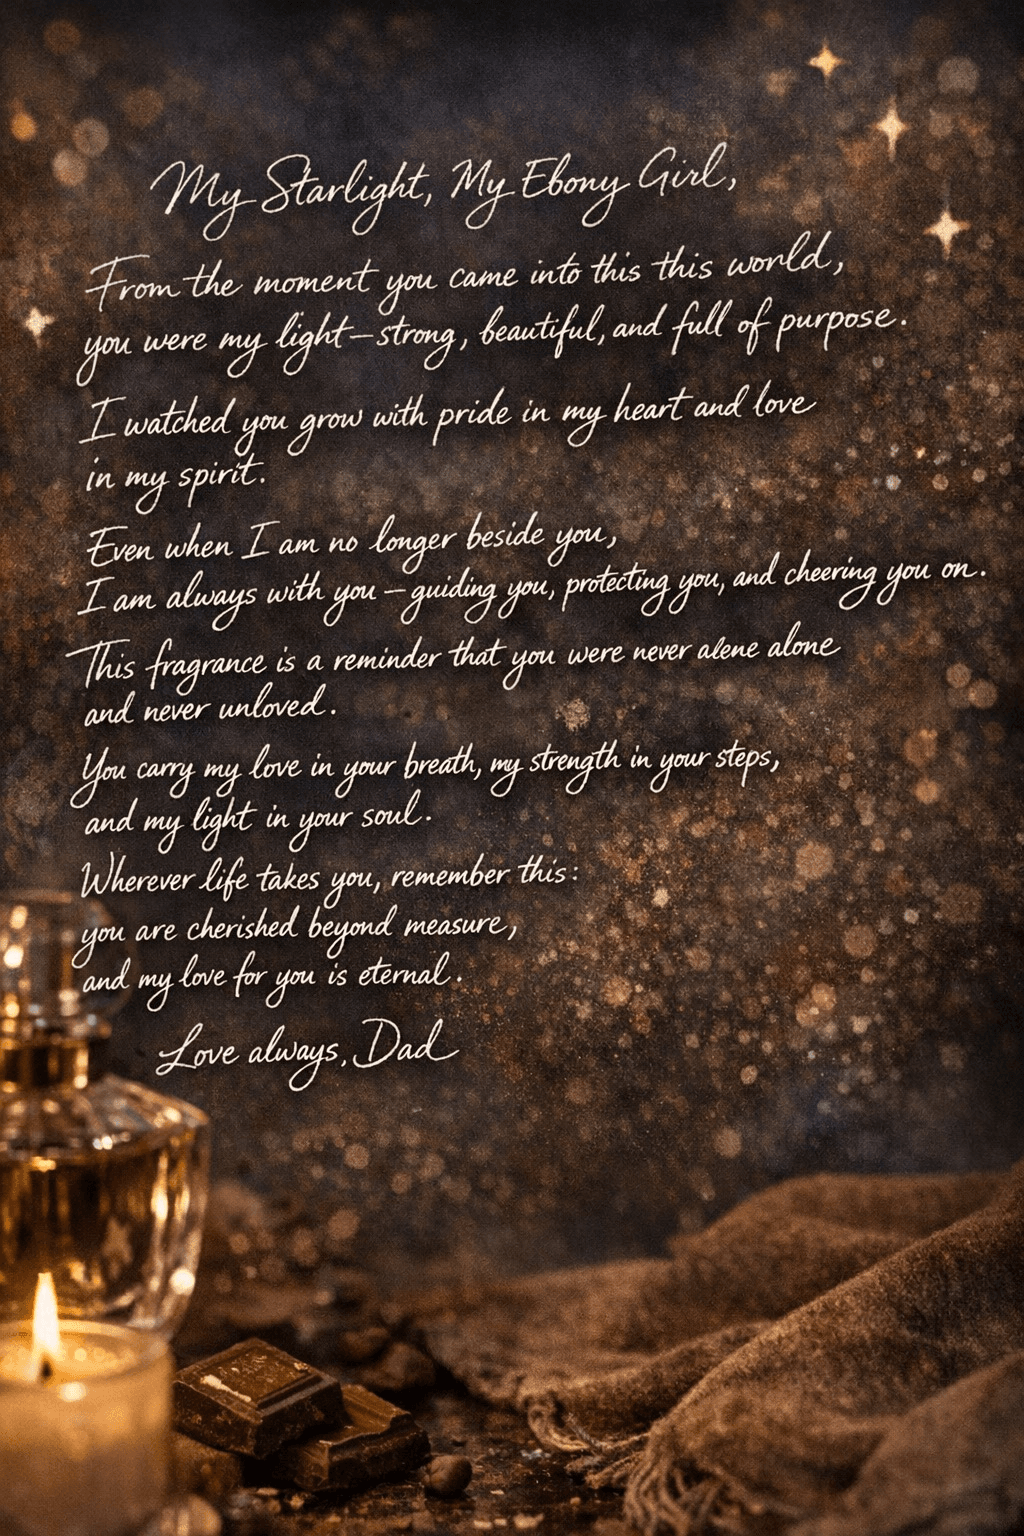 My Starlight, My Ebony Girl,
From the moment you came into this this world,
you were my light—strong, beautiful, and full of purpose.
I watched you grow with pride in my heart and love
in my spirit.
Even when I am no longer beside you,
I am always with you – guiding you, protecting you, and cheering you on.
This fragrance is a reminder that you were never alene alone
and never unloved.
You carry my love in your breath, my strength in your steps,
and my light in your soul.
Wherever life takes you, remember this:
you are cherished beyond measure,
and my love for you is eternal.
Love always, Dad